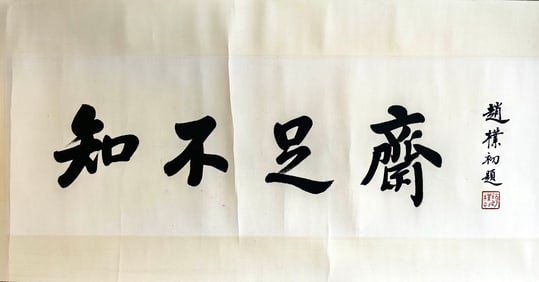 知不足齋
趙樸初題